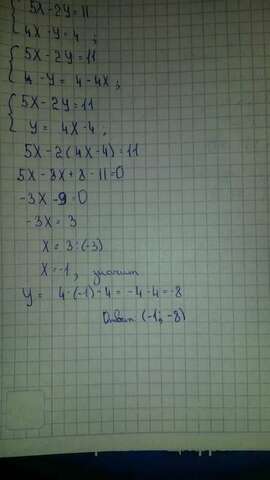 5x - 2y = 11
4x - y = 4 ;
5x - 2y = 11
- y = 4 - 4x ;
5x - 2y = 11
y = 4x - 4 ;
5x - 2(4x - 4) = 11
5x - 8x + 8 - 11 = 0
-3x - = 0
-3x = 3
x = 3 : (-3)
x = -1, значит
y = 4 · (-1) - 4 = -4 - 4 = -8
Ответ: (-1; -8)